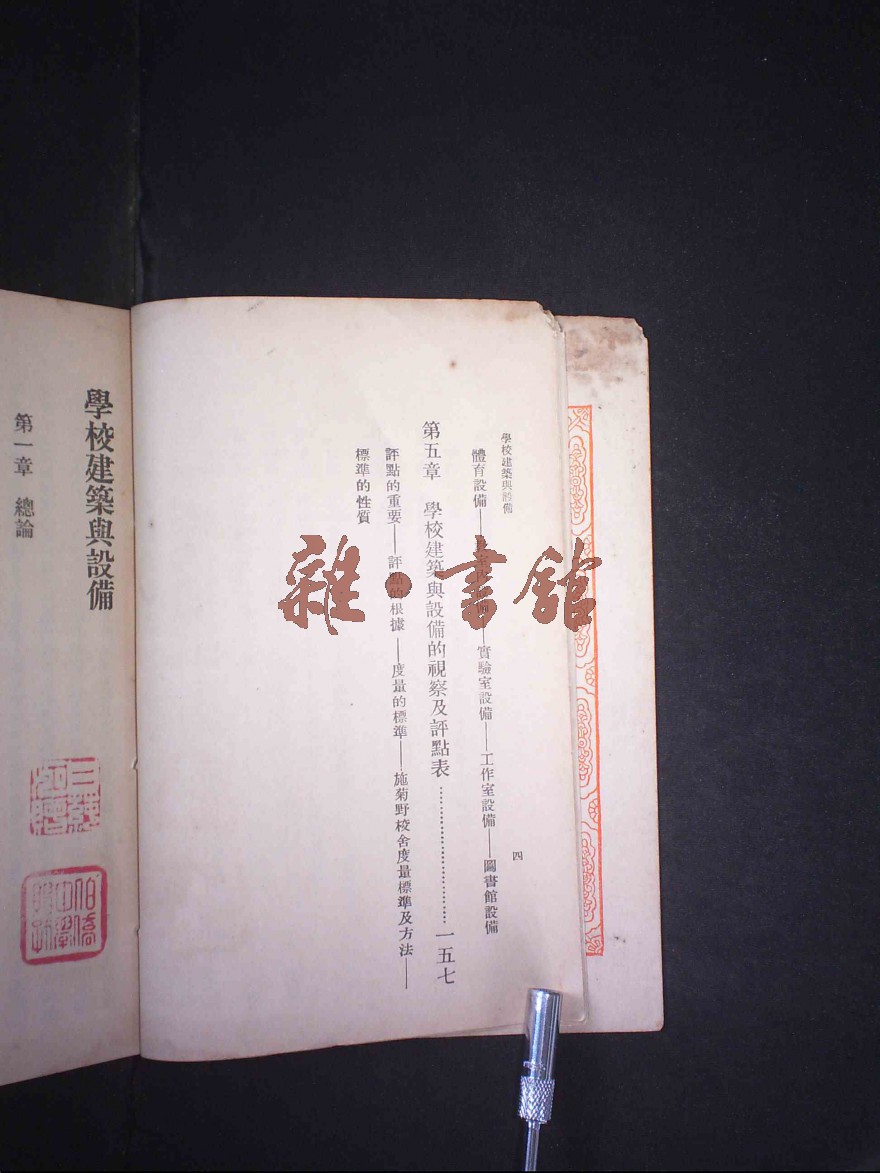 學校建築與設備
四
體育設備——設備——實驗室設備——工作室設備——圖書館設備
第五章 學校建築與設備的視察及評點表……………………一五七
評點的重要——評點的根據——度量的標準——施菊野校舍度量標準及方法——
標準的性質
學校建築與設備
第一章 總論
雜·書館